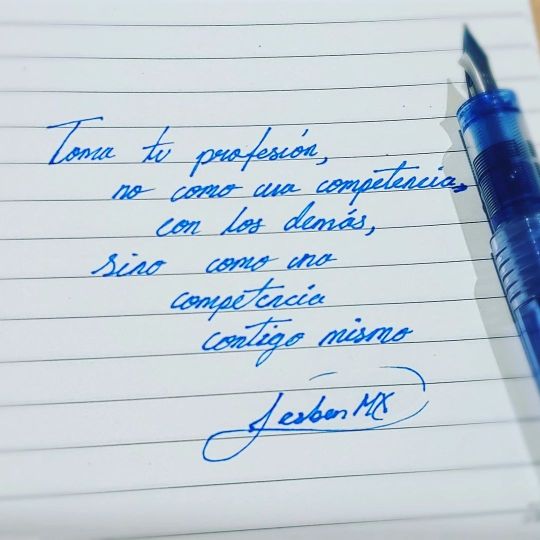 Toma tu profesión,
no como una competencia,
con los demás,
sino como una
competencia
contigo mismo